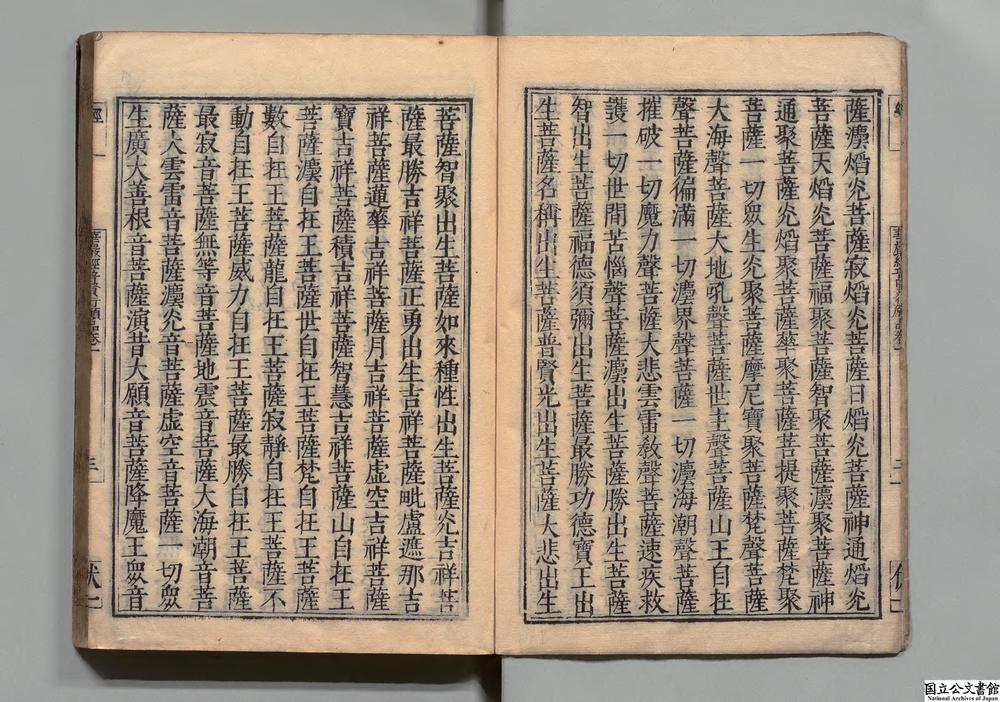 薩灋熖灮菩薩寂熖灮菩薩日熖灮菩薩神通熖灮
菩薩天熖灮菩薩福聚菩薩智聚菩薩灋聚菩薩神
通聚菩薩灮熖聚菩薩華聚菩薩菩提聚菩薩梵聚
菩薩一切眾生灮聚菩薩摩尼寶聚菩薩梵聲菩薩
大海聲菩薩大地吼聲菩薩世主聲菩薩山王自在
聲菩薩徧滿一切灋界聲菩薩一切灋海潮聲菩薩
摧破一切魔力聲菩薩大悲雲雷教聲菩薩速疾救
護一切世間苦惱聲菩薩灋出生菩薩勝出生菩薩
智出生菩薩福德須彌出生菩薩最勝功德寶王出
生菩薩名稱出生菩薩普賢光出生菩薩大悲出生
菩薩智聚出生菩薩如來種性出生菩薩灮吉祥菩
薩最勝吉祥菩薩正勇出生吉祥菩薩毗盧遮那吉
祥菩薩蓮華吉祥菩薩月吉祥菩薩虛空吉祥菩薩
寶吉祥菩薩積吉祥菩薩智慧吉祥菩薩山自在王
菩薩灋自在王菩薩世自在王菩薩梵自在王菩薩
數自在王菩薩龍自在王菩薩寂靜自在王菩薩不
動自在王菩薩威力自在王菩薩最勝自在王菩薩
最寂音菩薩無等音菩薩地震音菩薩大海潮音菩
薩大雲雷音菩薩灋灮音菩薩虛空音菩薩一切眾
生廣大善根音菩薩演昔大願音菩薩降魔王眾音
国立公文書館
National Archives of Japan